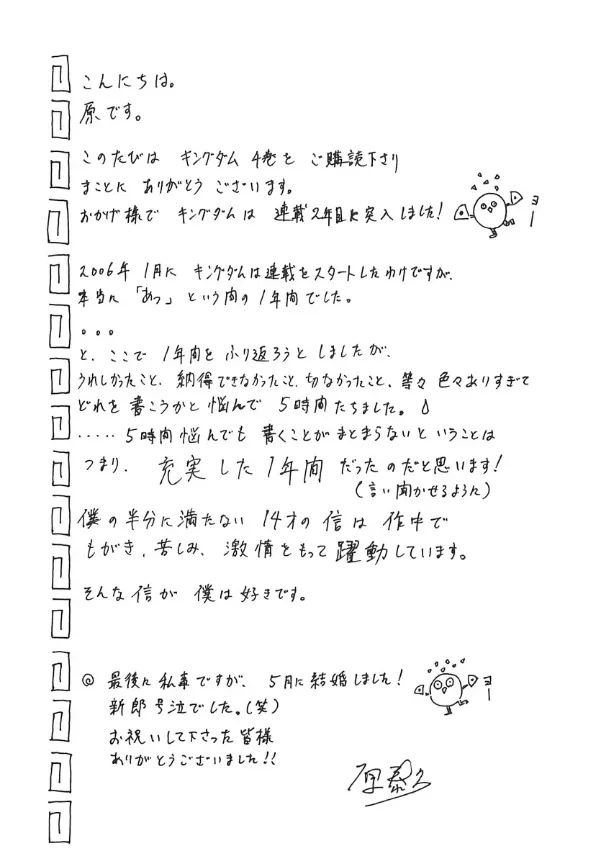 こんにちは。
原です。
このたびは キングダム 4巻を ご購読下さり
まことに ありがとう ございます。
おかげ様で キングダムは 連載2年目に突入しました!
ヨー
2006年 1月に キングダムは連載をスタートしたわけですが、
本当に 「あっ」 という間の1年間でした。
。。。
と、ここで 1年間を ふり返ろうと しましたが、
うれしかったこと、納得できなかったこと、切なかったこと、等々 色々ありすぎて
どれを 書こうかと 悩んで 5時間たちました。
・・・・・ 5時間 悩んでも 書くことが まとまらないと いうことは
つまり、 充実した1年間 だったのだと思います!
(言い聞かせるように)
僕の半分に満たない 14才の 信は 作中で
もがき、苦しみ、 激情をもって 躍動しています。
そんな 信が 僕は 好きです。
◎ 最後に 私事ですが、 5月に 結婚しました!
ヨー
新郎号泣でした。(笑)
お祝いして下さった皆様
ありがとうございました!!
原泰久